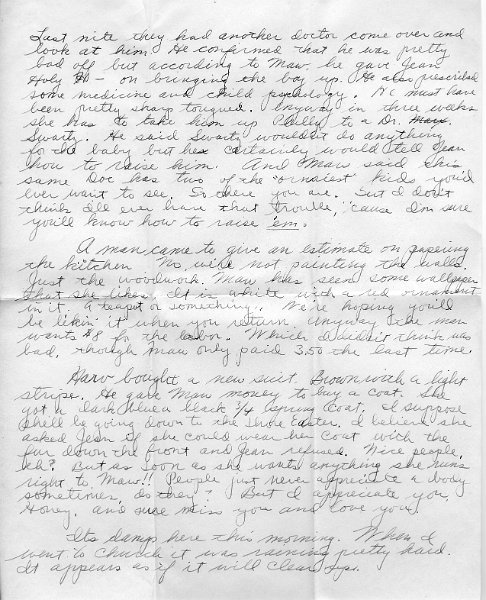 Last nite they had another doctor come over and
look at him. He confirmed that he was pretty
bad off but according to Maw he gave Jean
Holy H— on bringing the boy up. He also prescribed
some medicine and child psychology. He must have
been pretty sharp tongued. Anyway in three weeks
she has to take him up Philly to a Dr.
Swartz. He said Swartz wouldn't do anything
fo the baby but he certainly would tell Jean
how to raise him. And Maw said this
same Doc has two of the "orneriest" kids you'd
ever want to see. So there you are. But I don't
think I'll ever have that trouble, 'cause I'm sure
you'll know how to raise 'em.
A man came to give an estimate on papering
the kitchen. No, we're not painting the walls.
Just the woodwork. Maw has seen some wallpaper
that she likes. It is white with a red ornament
in it. A teapot or something. We're hoping you'll
be likin' it when you return. Anyway the man
wants $8 fo the labor. Which I didn't think was
bad, though Maw only paid 3.50 the last time.
Harv bought a new suit. Brown with a light
stripe. He gave Maw money to buy a coat. She
got a dark blue or black 3/4 spring coat. I suppose
she'll be going down to the Shore Easter. I believe she
asked Jean if she could wear her coat with the
fur down the front and Jean refused. Nice people,
eh? But as soon as she wants anything she runs
right to Maw!! People just never appreciate a body
sometimes, do they? But I appreciate you
Honey, and sure miss you and love you!
It's damp here this morning. When I
went to Church it was raining pretty hard.
It appears as if it will clear up.